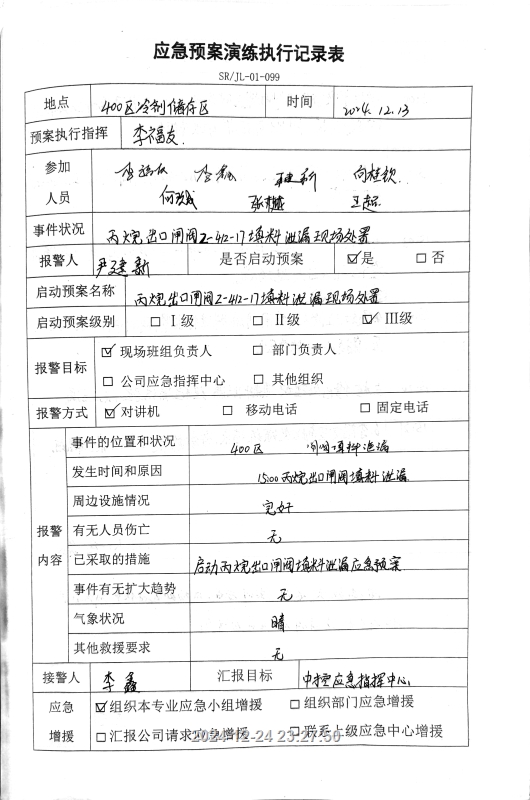 应急预案演练执行记录表
SR/JL-01-099
地点 400区冷剂储存区 时间 2024.12.13
预案执行指挥 李福友
参加人员 李福友 李鑫 向桂钦
王超
事件状况 丙烷出口闸阀2-412-17填料泄漏现场处置
报警人 尹建新 是否启动预案 ☑是 □否
启动预案名称 丙烷出口闸阀2-412-17填料泄漏现场处置
启动预案级别 □Ⅰ级 □Ⅱ级 ☑Ⅲ级
报警目标 ☑现场班组负责人 □部门负责人
□公司应急指挥中心 □其他组织
报警方式 ☑对讲机 □移动电话 □固定电话
报警内容 事件的位置和状况 400区 闸阀填料泄漏
发生时间和原因 15:00丙烷出口闸阀填料泄漏
周边设施情况 完好
有无人员伤亡 无
已采取的措施 启动丙烷出口闸阀填料泄漏应急预案
事件有无扩大趋势 无
气象状况 晴
其他救援要求 无
接警人 李鑫 汇报目标 中控应急指挥中心
应急增援 ☑组织本专业应急小组增援 □组织部门应急增援
□汇报公司请求应急增援 □联系上级应急中心增援
2024-12-24 23:27:50